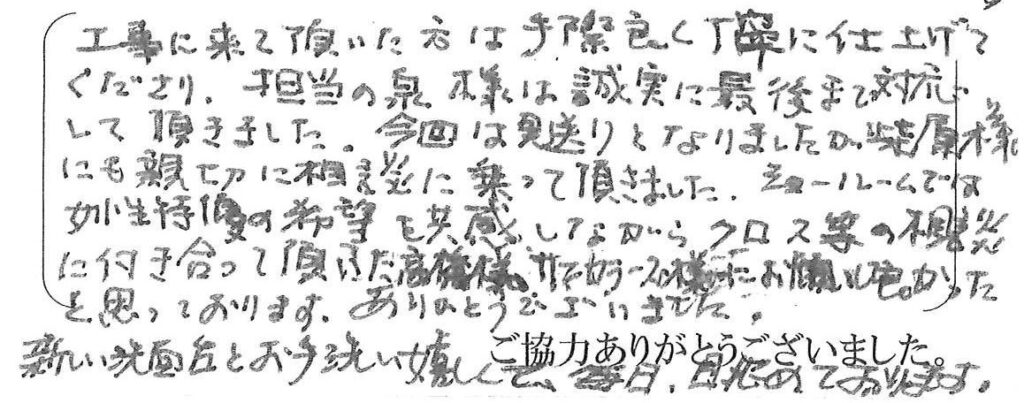 工事に来て頂いた方は手際良く丁寧に仕上げて
くださり、担当の泉様は誠実に最後まで対応
して頂きました。今回は見送りとなりましたが 原様
にも親切に相談に乗って頂きました。ショールームでは
女性特有の希望を共感しながらクロス等の相談
に付き合って頂きた高橋様、 様にお願いして良かった
と思っております。ありがとうございました。
新しい洗面台とお手洗い嬉しくて、毎日、 めております。
ご協力ありがとうございました。